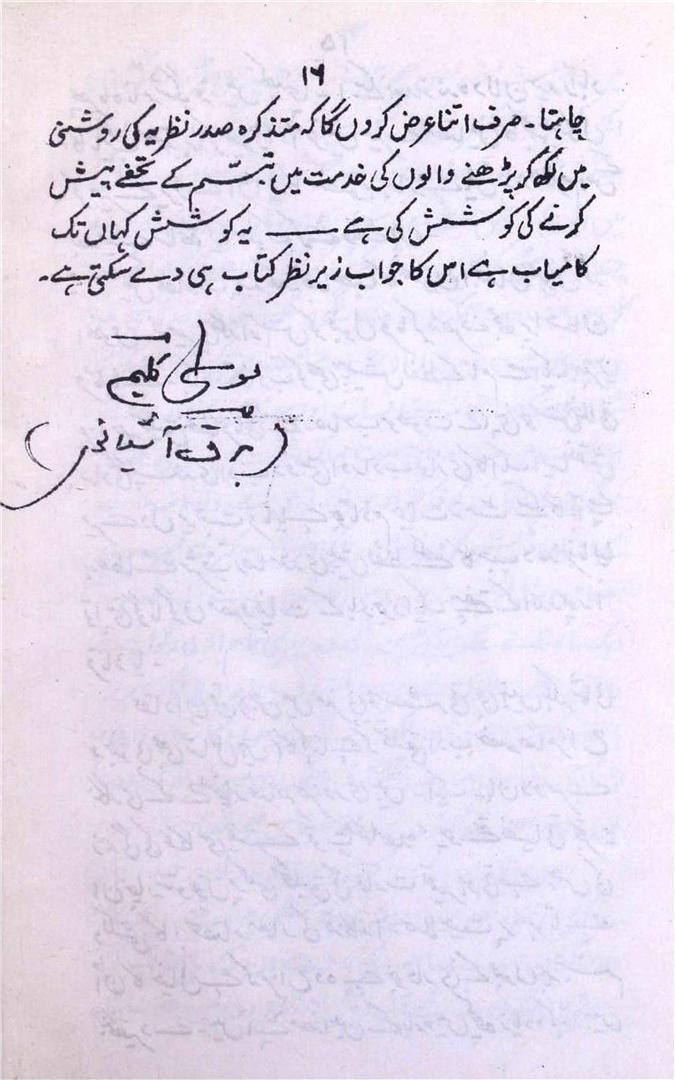 ۱۶
چاہتا۔ صرف اتنا عرض کروں گا کہ متذکرہ صدر نظریہ کی روشنی
میں لکھ کر پڑھنے والوں کی خدمت میں تبسّم کے تحفے پیش
کرنے کی کوشش کی ہے —— یہ کوشش کہاں تک
کامیاب ہے اس کا جواب زیر نظر کتاب ہی دے سکتی ہے۔
موسیٰ کلیم
(برق آشیانوی)